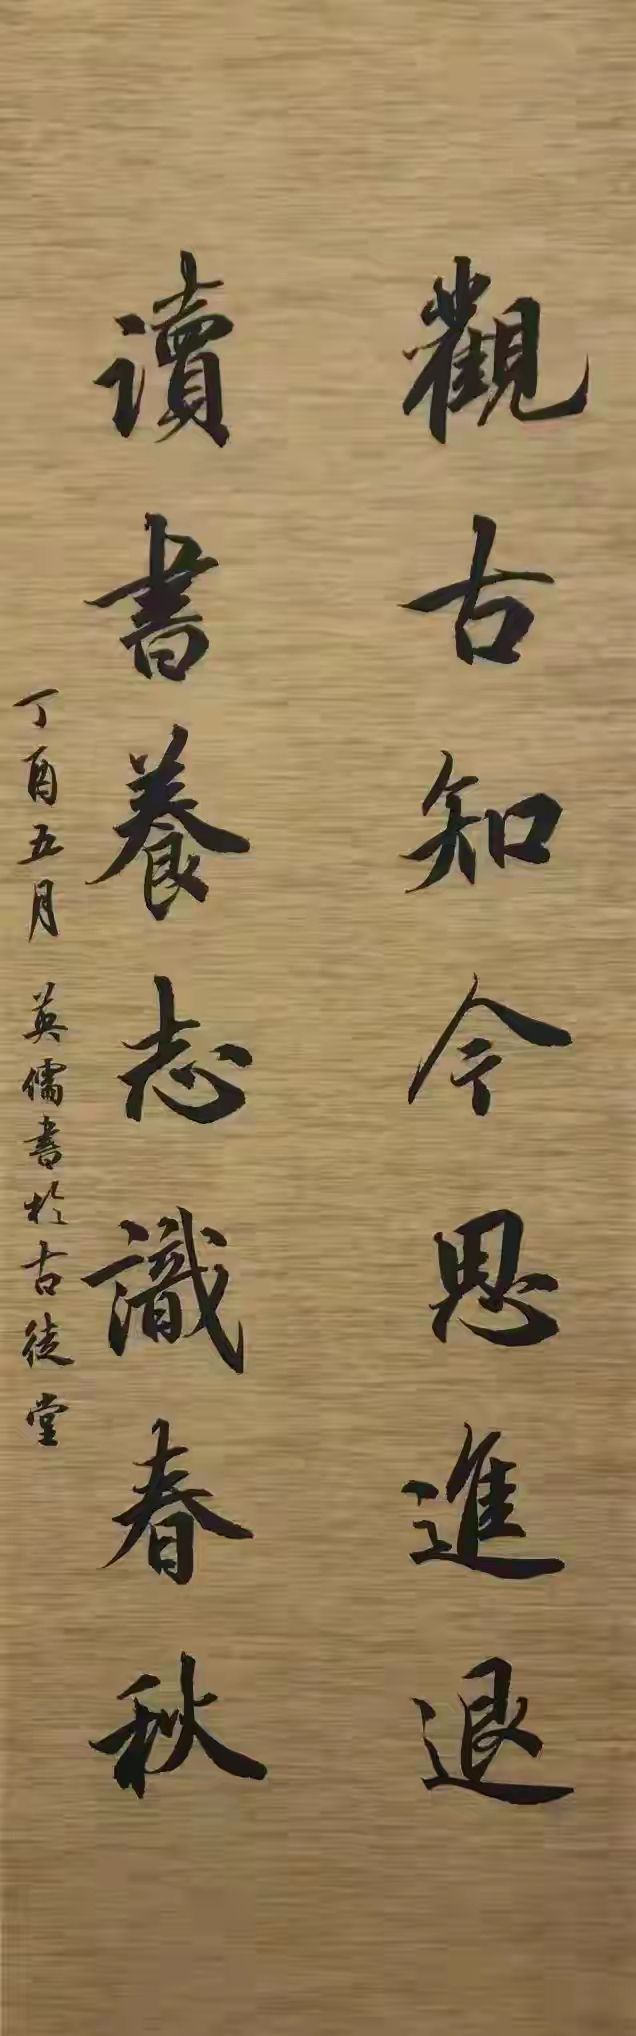 觀古知今思進退
讀書養志識春秋
丁酉五月 英儒書於古徒堂